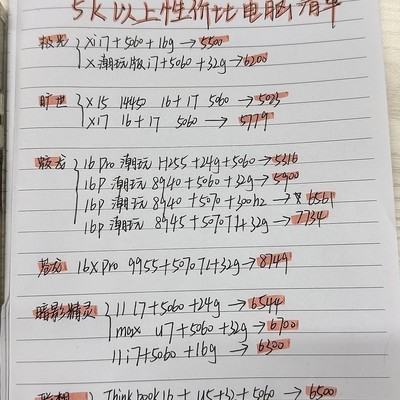 5k以上性价比电脑清单
极光 Xi7+5060+16g→5500
X潮玩版i7+5060+32g→6200
旷世 X15 14450 16+1T 5060→5023
X17 16+1T 5060→5779
蛟龙 16 pro 潮玩 H255+24g+5060→5316
16p 潮玩 8940+5060+32g→5900
16p 潮玩 8940+5070+300hz→6561
16p 潮玩 8945+5070Ti+32g→7734
苍龙 16XPro 9955+5070Ti+32g→8749
暗影精灵 11 i7+5060+24g→6544
max u7+5060+32g→6700
11 i7+5060+16g→6300
联想 Thinkbook16+ u5+32+5060→6500